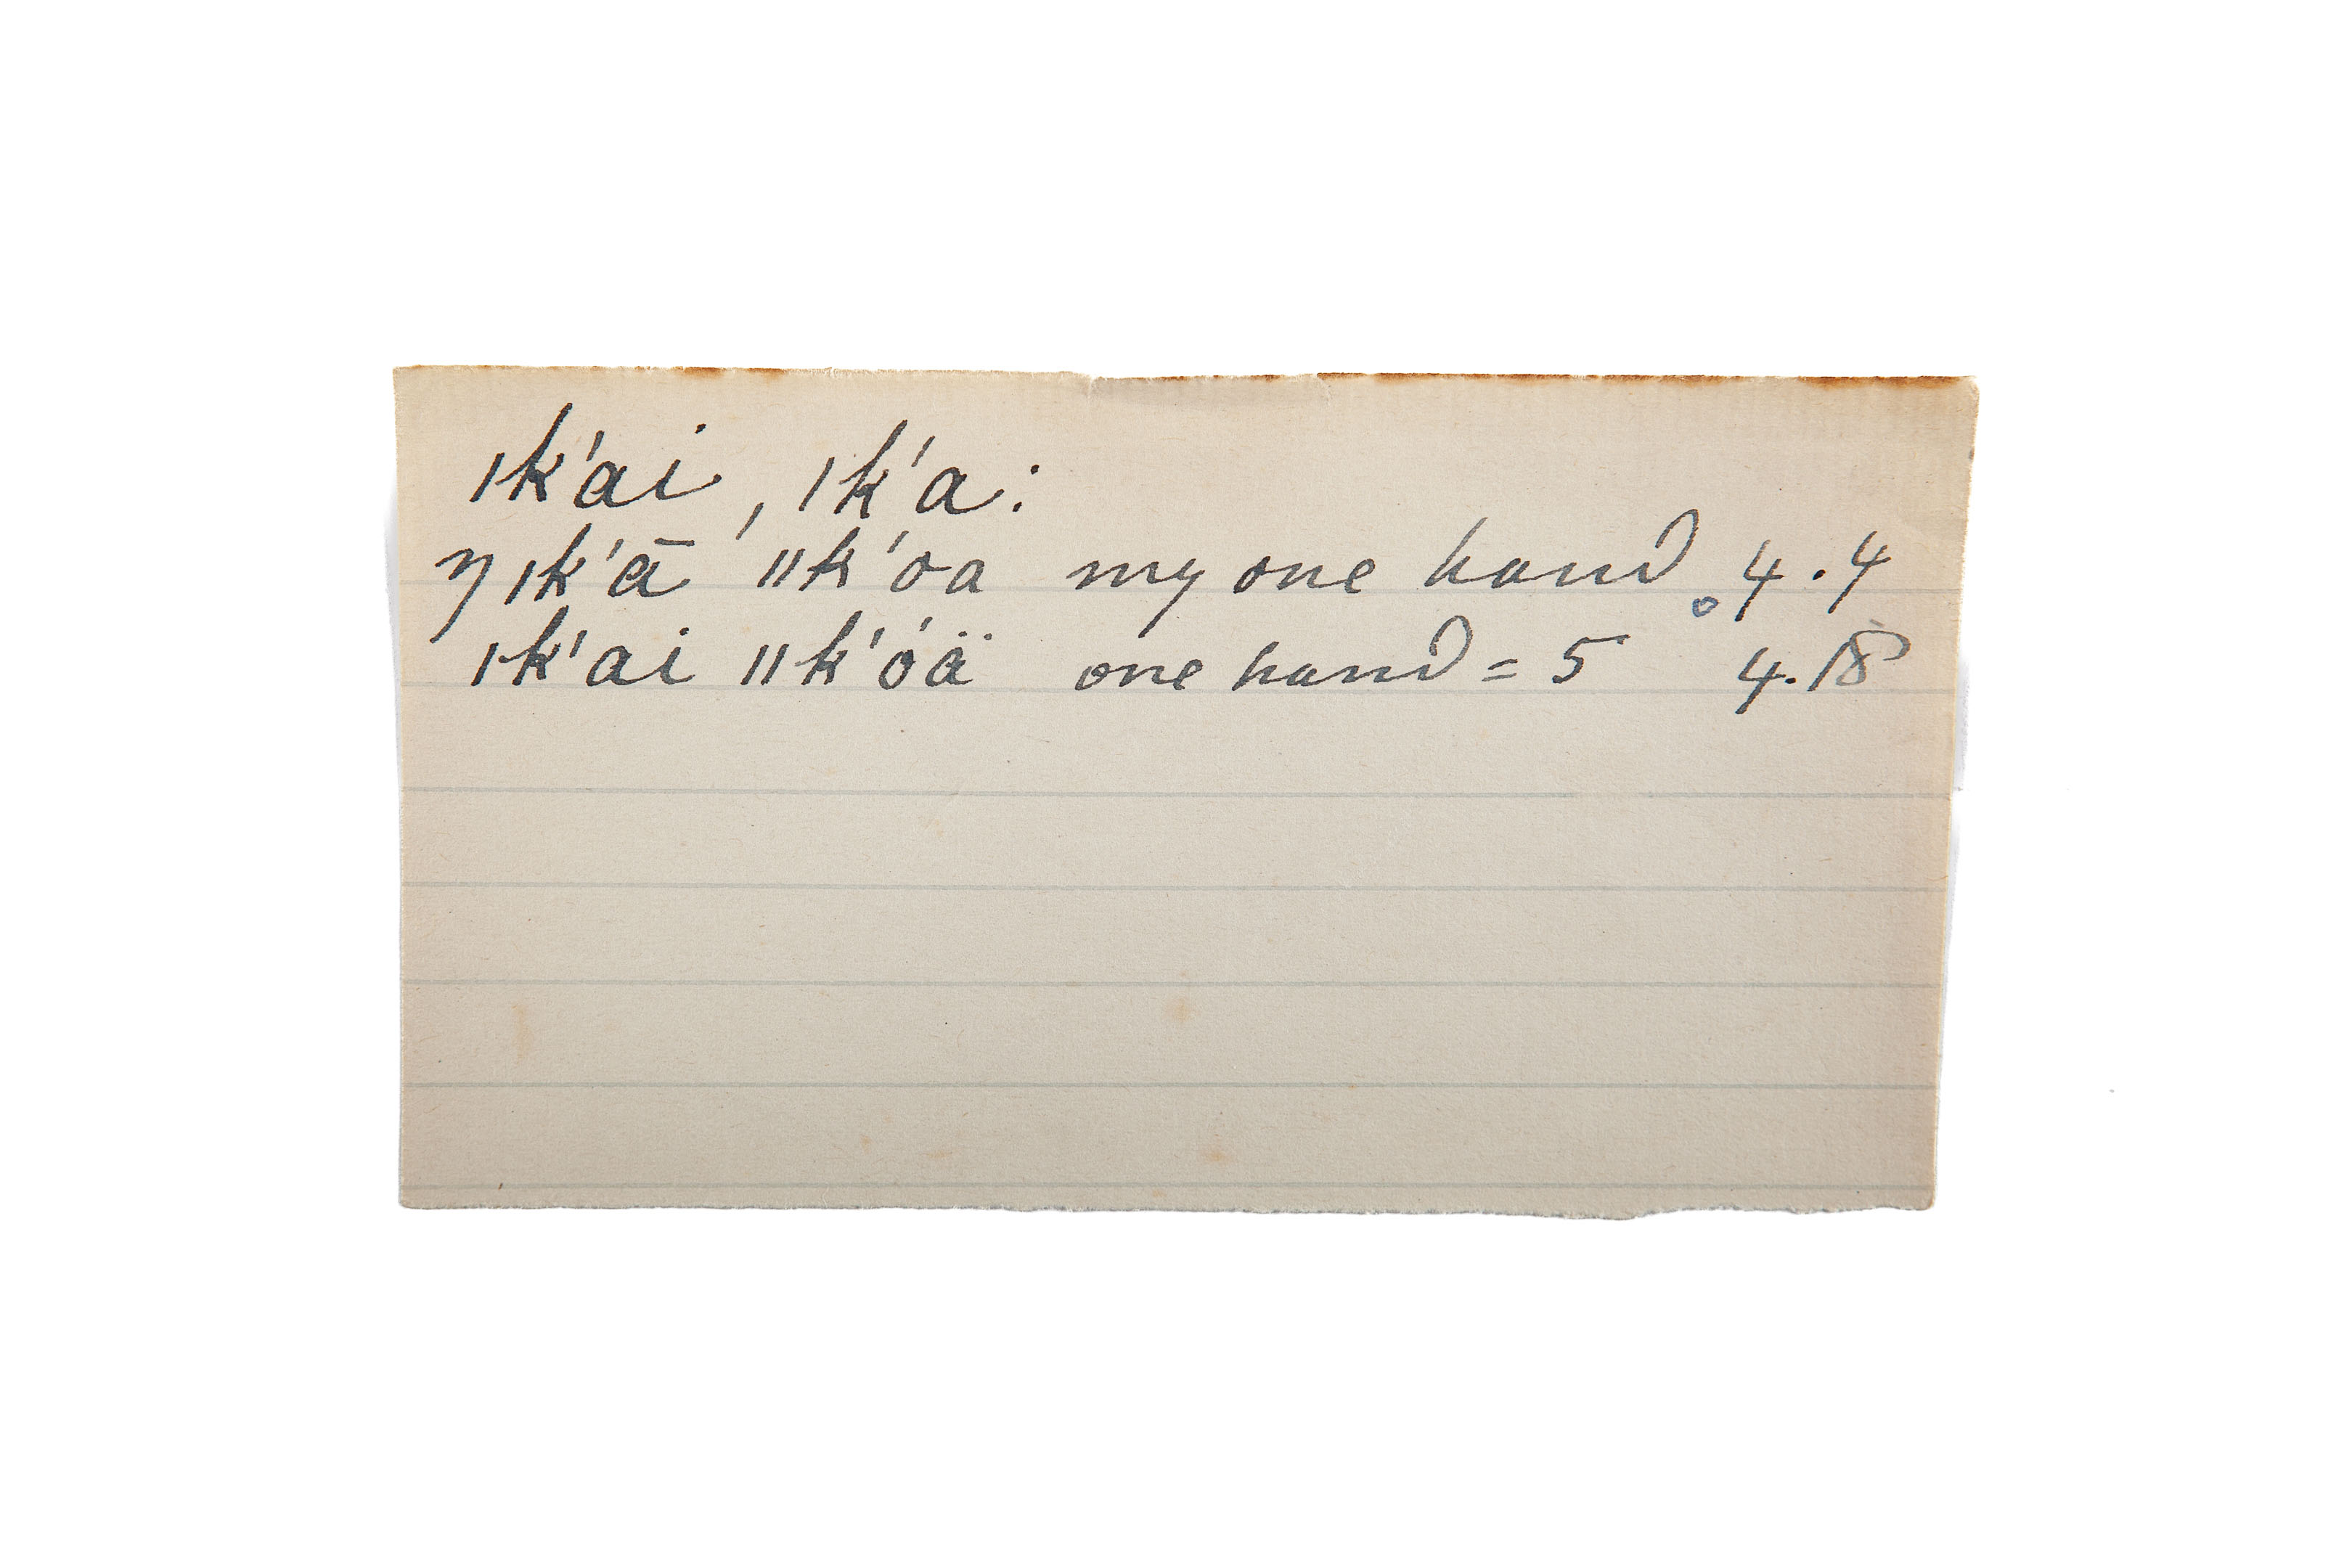 ǀk'ai, ǀk'a:
ŋ ǀk'ā ǁk'oa my one hand 4.4
ǀk'ai ǁk'óä one hand = 5 4.18